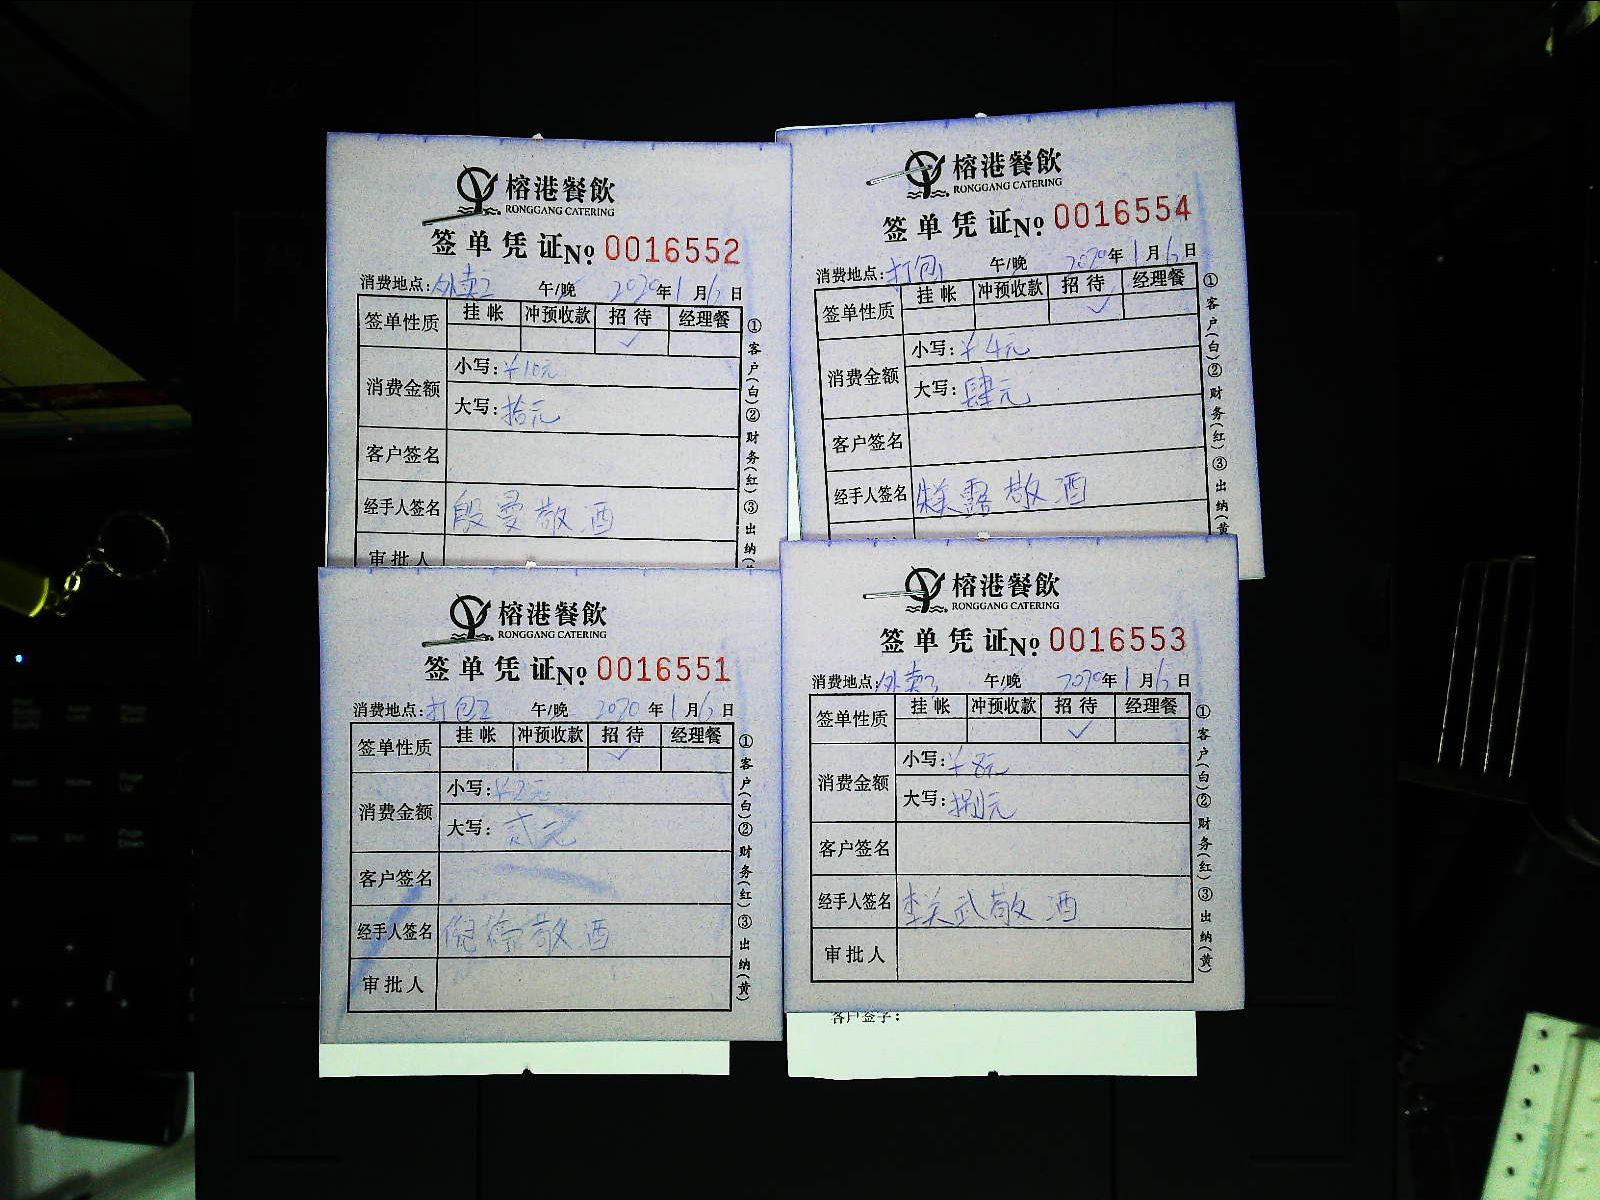 榕港餐飲
RONGGANG CATERING
签单凭证№ 0016552
消费地点: 外卖2 午/晚 2020年1月6日
签单性质 挂帐 冲预收款 招待 经理餐
✓
消费金额 小写: ¥10元
大写: 拾元
客户签名
经手人签名 殷曼敬酒
审批人
①客户(白)②财务(红)③出纳(
榕港餐飲
RONGGANG CATERING
签单凭证№ 0016554
消费地点: 打包1 午/晚 2020年1月6日
签单性质 挂帐 冲预收款 招待 经理餐
✓
消费金额 小写: ¥4元
大写: 肆元
客户签名
经手人签名 露敬酒
①客户(白)②财务(红)③出纳(黄
榕港餐飲
RONGGANG CATERING
签单凭证№ 0016551
消费地点: 打包2 午/晚 2020年1月6日
签单性质 挂帐 冲预收款 招待 经理餐
✓
消费金额 小写: ¥2元
大写: 贰元
客户签名
经手人签名 倪德敬酒
审批人
①客户(白)②财务(红)③出纳(黄)
榕港餐飲
RONGGANG CATERING
签单凭证№ 0016553
消费地点: 外卖2 午/晚 2020年1月6日
签单性质 挂帐 冲预收款 招待 经理餐
✓
消费金额 小写: ¥8元
大写: 捌元
客户签名
经手人签名 李关武敬酒
审批人
①客户(白)②财务(红)③出纳(黄)
客户签字: